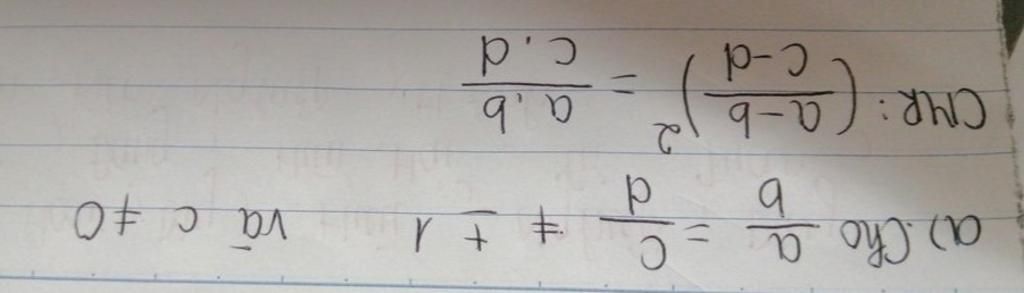 a) Cho a/b = c/d ≠ ± 1 và c ≠ 0
CMR: ((a-b)/(c-d))² = (a.b)/(c.d)